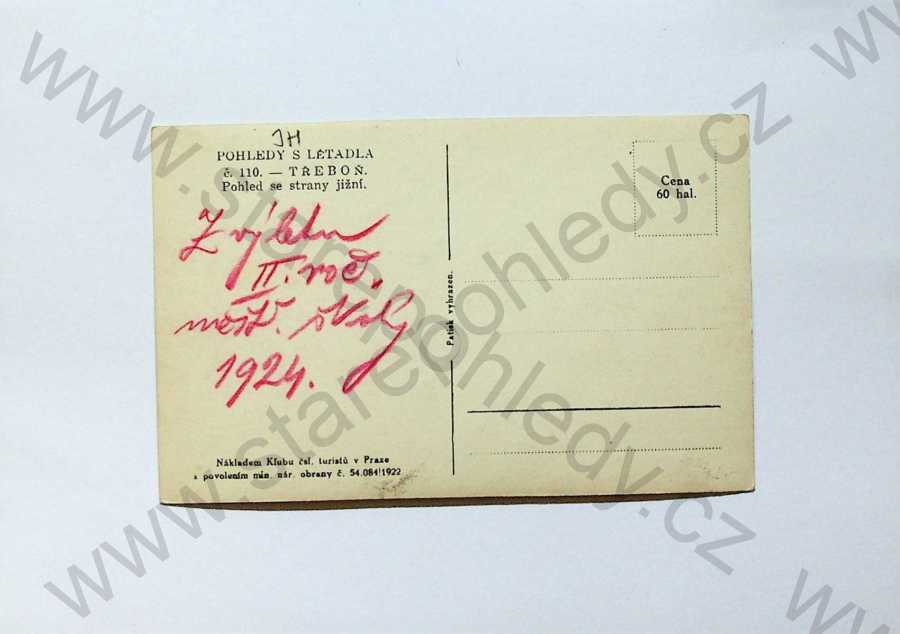 JH
POHLEDY S LÉTADLA
č. 110. — TŘEBOŇ.
Pohled se strany jižní.
Z výletu
II. roč.
měšť. školy
1924.
Nákladem Klubu čsl. turistů v Praze
s povolením min. nár. obrany č. 54.084/1922
Patisk vyhrazen.
Cena
60 hal.
www.starepohledy.cz
www.starepohledy.cz
www
www